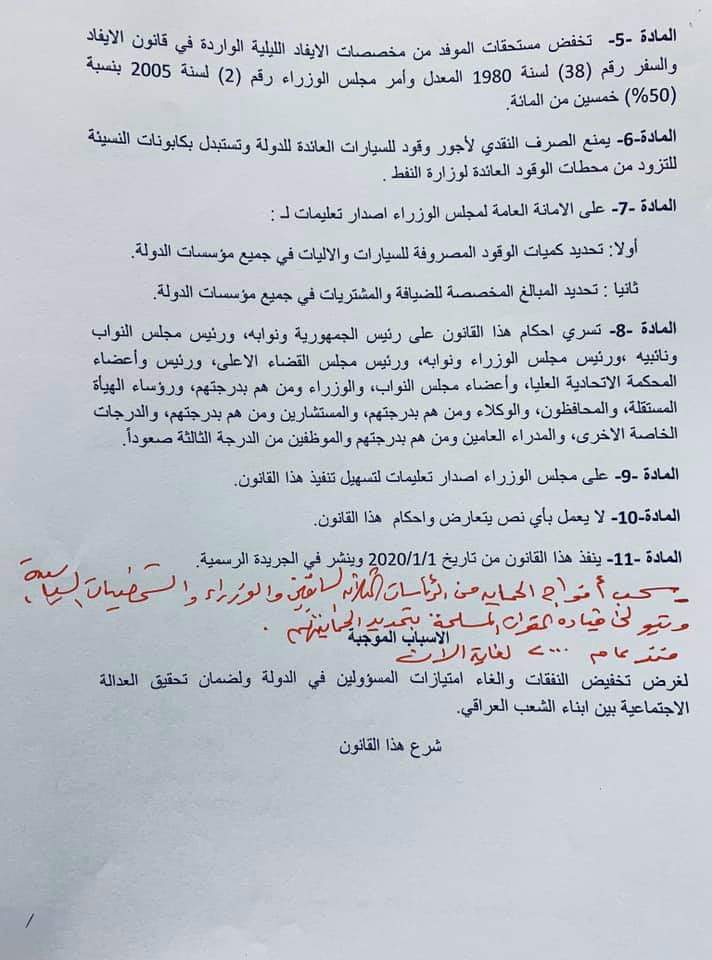 المادة -5- تخفض مستحقات الموفد من مخصصات الايفاد الليلية الواردة في قانون الايفاد
والسفر رقم (38) لسنة 1980 المعدل وأمر مجلس الوزراء رقم (2) لسنة 2005 بنسبة
(50%) خمسين من المائة.
المادة-6- يمنع الصرف النقدي لأجور وقود للسيارات العائدة للدولة وتستبدل بكابونات النسيئة
للتزود من محطات الوقود العائدة لوزارة النفط .
المادة -7- على الامانة العامة لمجلس الوزراء اصدار تعليمات لـ :
أولا: تحديد كميات الوقود المصروفة للسيارات والاليات في جميع مؤسسات الدولة.
ثانيا : تحديد المبالغ المخصصة للضيافة والمشتريات في جميع مؤسسات الدولة.
المادة -8- تسري احكام هذا القانون على رئيس الجمهورية ونوابه، ورئيس مجلس النواب
ونائبيه ،ورئيس مجلس الوزراء ونوابه، ورئيس مجلس القضاء الاعلى، ورئيس وأعضاء
المحكمة الاتحادية العليا، وأعضاء مجلس النواب، والوزراء ومن هم بدرجتهم، ورؤساء الهيأة
المستقلة، والمحافظون، والوكلاء ومن هم بدرجتهم، والمستشارين ومن هم بدرجتهم، والدرجات
الخاصة الاخرى، والمدراء العامين ومن هم بدرجتهم والموظفين من الدرجة الثالثة صعوداً.
المادة -9- على مجلس الوزراء اصدار تعليمات لتسهيل تنفيذ هذا القانون.
المادة-10- لا يعمل بأي نص يتعارض واحكام هذا القانون.
المادة -11- ينفذ هذا القانون من تاريخ 2020/1/1 وينشر في الجريدة الرسمية.
- سحب أفواج الحماية من الرئاسات الثلاثة السابقين والوزراء والشخصيات السياسية
وتتولى قيادة القوات المسلحة بتحديد الحماية لهم .
الاسباب الموجبة
منذ عام ٢٠٠٠ لغاية الآن
لغرض تخفيض النفقات والغاء امتيازات المسؤولين في الدولة ولضمان تحقيق العدالة
الاجتماعية بين ابناء الشعب العراقي.
شرع هذا القانون